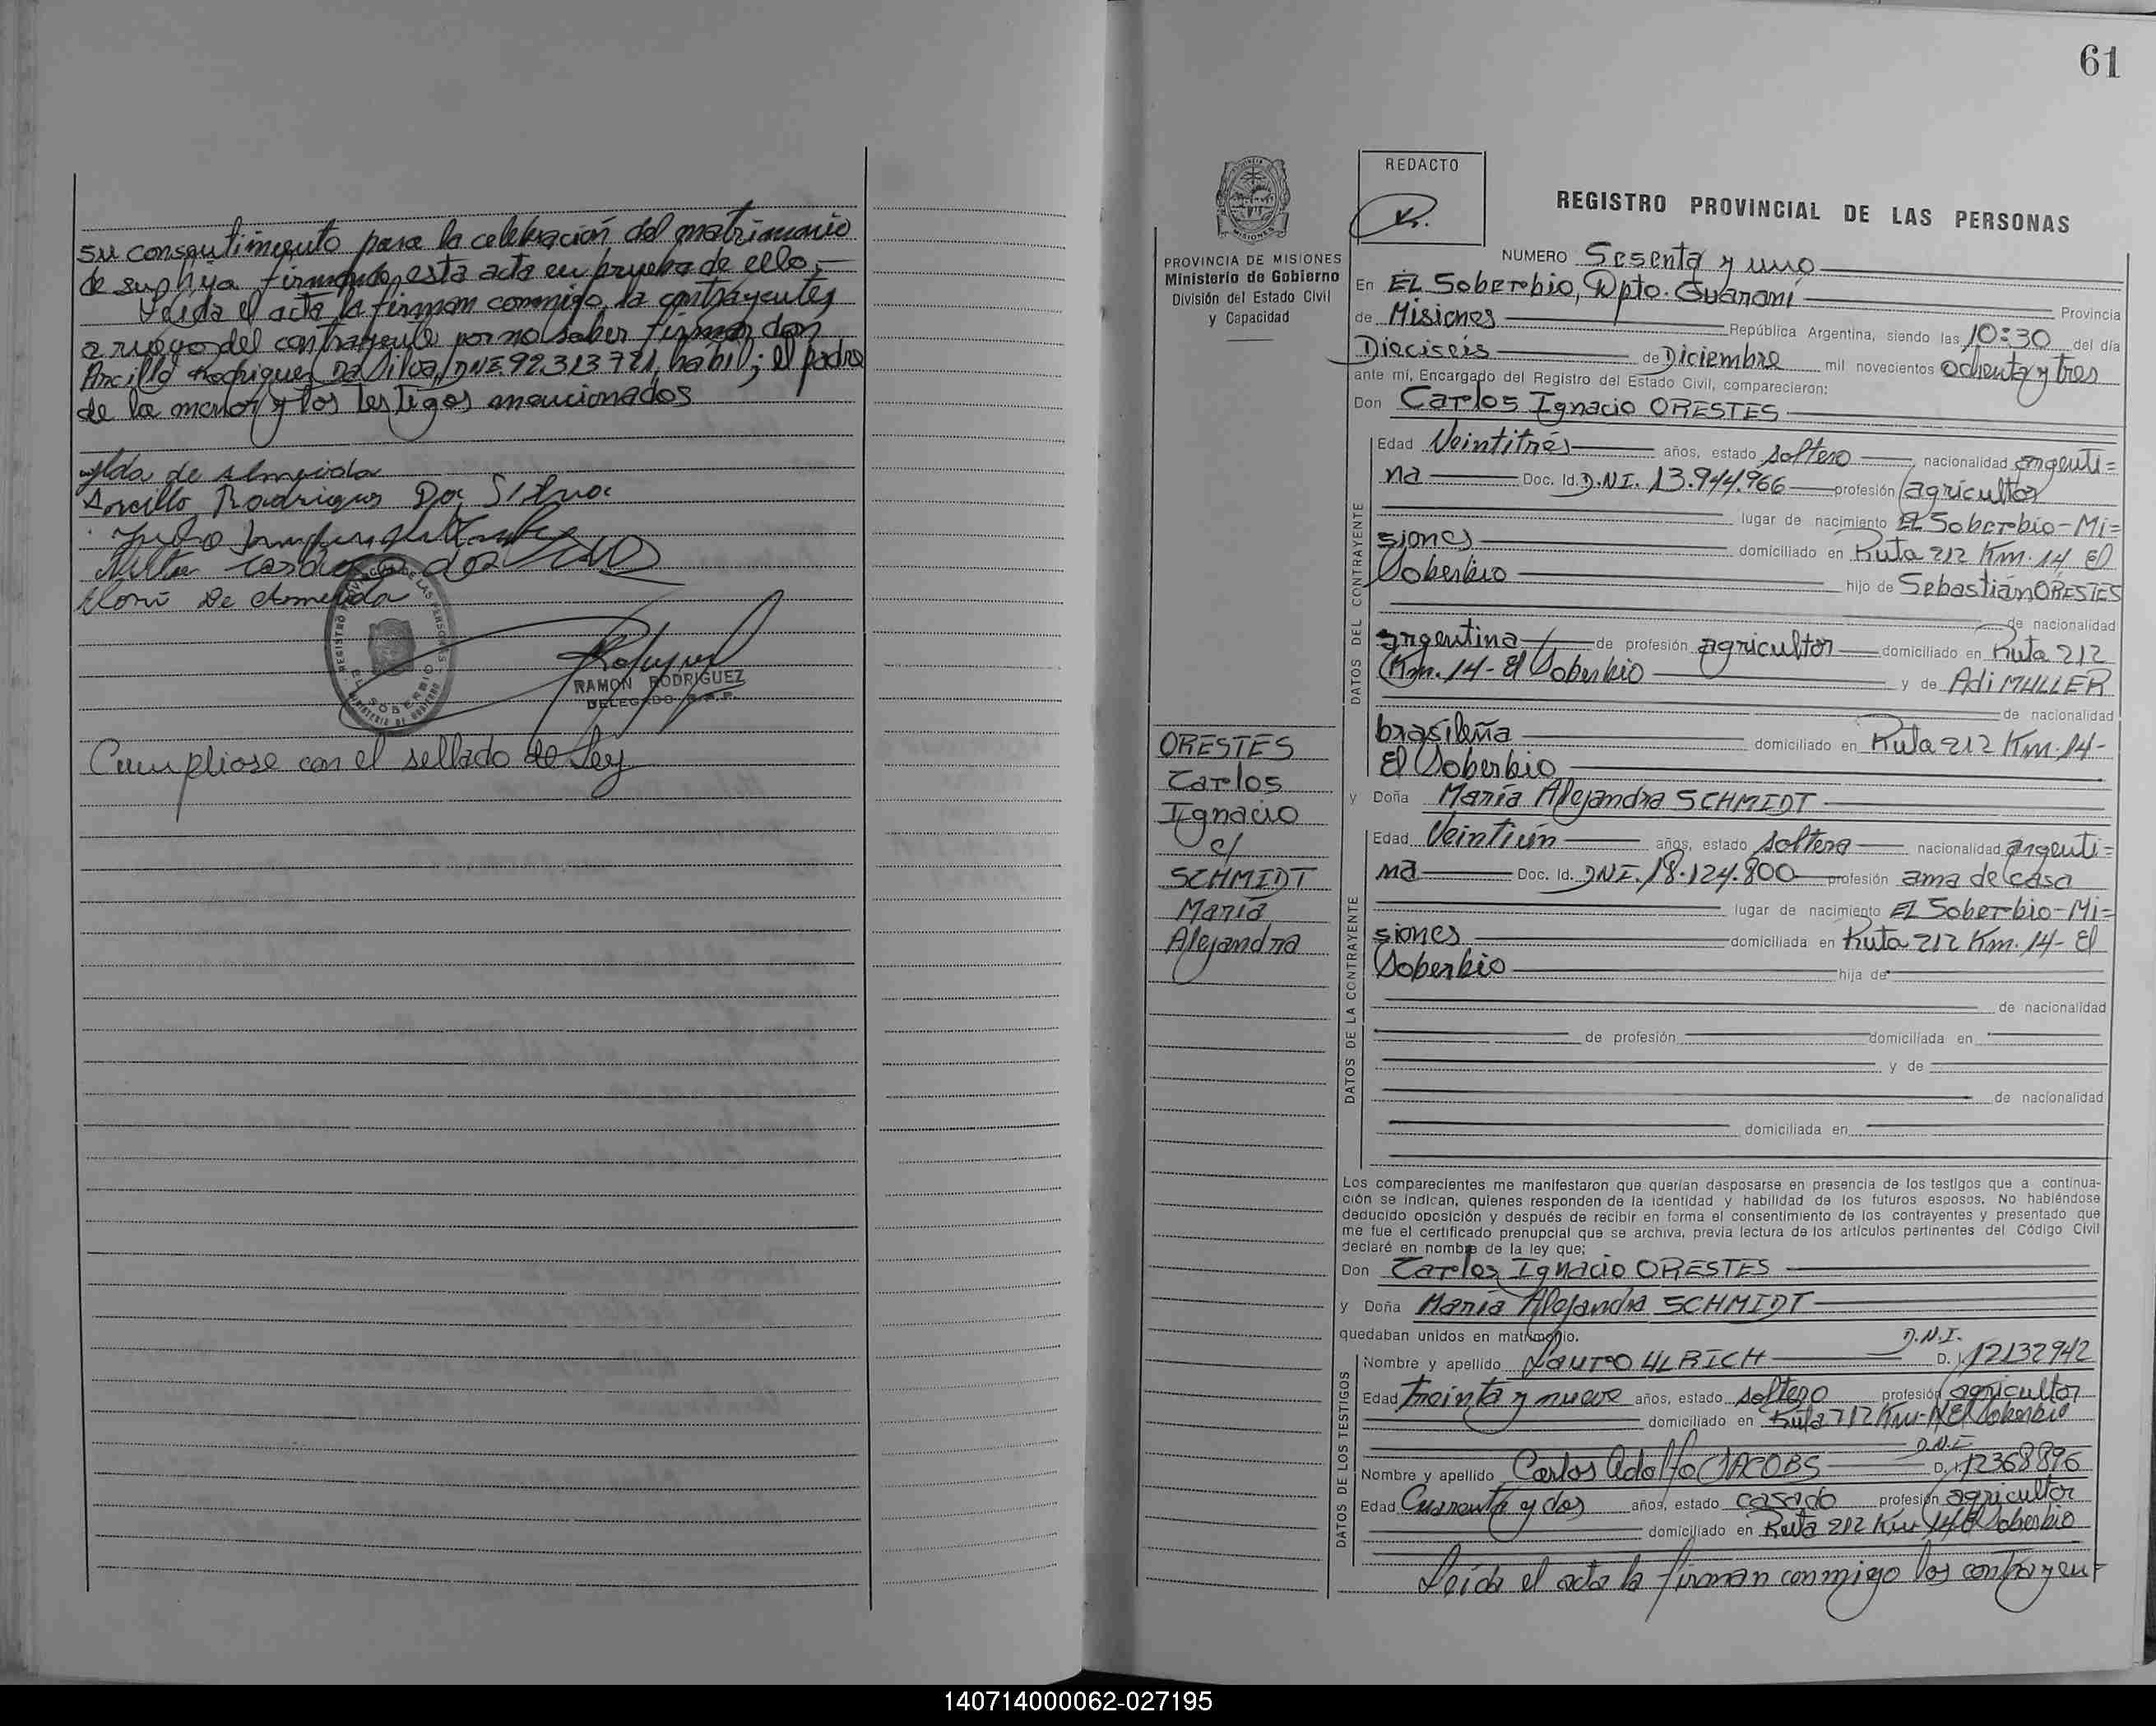 su consentimiento para la celebración del matrimonio
de su hija, firmando esta acta en prueba de ello.-
Leída el acta la firman conmigo, la contrayente,
a ruego del contrayente por no saber firmar don
Ancillo Rodriguez Da Silva, DNE. 92.313.721, habil; el padre
de la menor y los testigos mencionados
Ilda de Almeida
Ancillo Rodrigues Da Silva
de Almeida
REGISTRO PROVINCIAL DE LAS PERSONAS
EL SOBERBIO
MINISTERIO DE GOBIERNO
RAMON RODRIGUEZ
DELEGADO R.P.P.
Cumpliose con el sellado de Ley
61
PROVINCIA DE MISIONES
Ministerio de Gobierno
División del Estado Civil
y Capacidad
REDACTO
REGISTRO PROVINCIAL DE LAS PERSONAS
NUMERO Sesenta y uno
En EL Soberbio, Dpto. Guaraní
Provincia
de Misiones República Argentina, siendo las 10:30 del día
Dieciseis de Diciembre mil novecientos ochenta y tres
ante mí, Encargado del Registro del Estado Civil, comparecieron:
Don Carlos Ignacio ORESTES
DATOS DEL CONTRAYENTE
Edad Veintitrés años, estado soltero nacionalidad argenti=
na Doc. Id. D.N.I. 13.944.966 profesión agricultor
lugar de nacimiento EL Soberbio-Mi=
siones domiciliado en Ruta 212 Km. 14 El
Soberbio hijo de Sebastián ORESTES
de nacionalidad
argentina de profesión agricultor domiciliado en Ruta 212
Km. 14- El Soberbio y de Adi MULLER
de nacionalidad
brasileña domiciliado en Ruta 212 Km. 14-
El Soberbio
ORESTES
Carlos
Ignacio
c/
SCHMIDT
María
Alejandra
y Doña María Alejandra SCHMIDT
DATOS DE LA CONTRAYENTE
Edad Veintiún años, estado soltera nacionalidad argenti=
na Doc. Id. DNI. 18.124.800 profesión ama de casa
lugar de nacimiento EL Soberbio-Mi=
siones domiciliada en Ruta 212 Km. 14- El
Soberbio hija de
de nacionalidad
de profesión domiciliada en
y de
de nacionalidad
domiciliada en
Los comparecientes me manifestaron que querían desposarse en presencia de los testigos que a continua-
ción se indican, quienes responden de la identidad y habilidad de los futuros esposos. No habiéndose
deducido oposición y después de recibir en forma el consentimiento de los contrayentes y presentado que
me fue el certificado prenupcial que se archiva, previa lectura de los artículos pertinentes del Código Civil
declaré en nombre de la ley que:
Don Carlos Ignacio ORESTES
y Doña María Alejandra SCHMIDT
quedaban unidos en matrimonio.
DATOS DE LOS TESTIGOS
D.N.I.
Nombre y apellido Lauro ULRICH D. I. 12132942
Edad treinta y nueve años, estado soltero profesión agricultor
domiciliado en Ruta 212 Km-14 El Soberbio
D.N.I
Nombre y apellido Carlos Adolfo JACOBS D. I. 12368896
Edad Cuarenta y dos años, estado casado profesión agricultor
domiciliado en Ruta 212 Km 14 El Soberbio
Leída el acta la firman conmigo los contrayen-
140714000062-027195